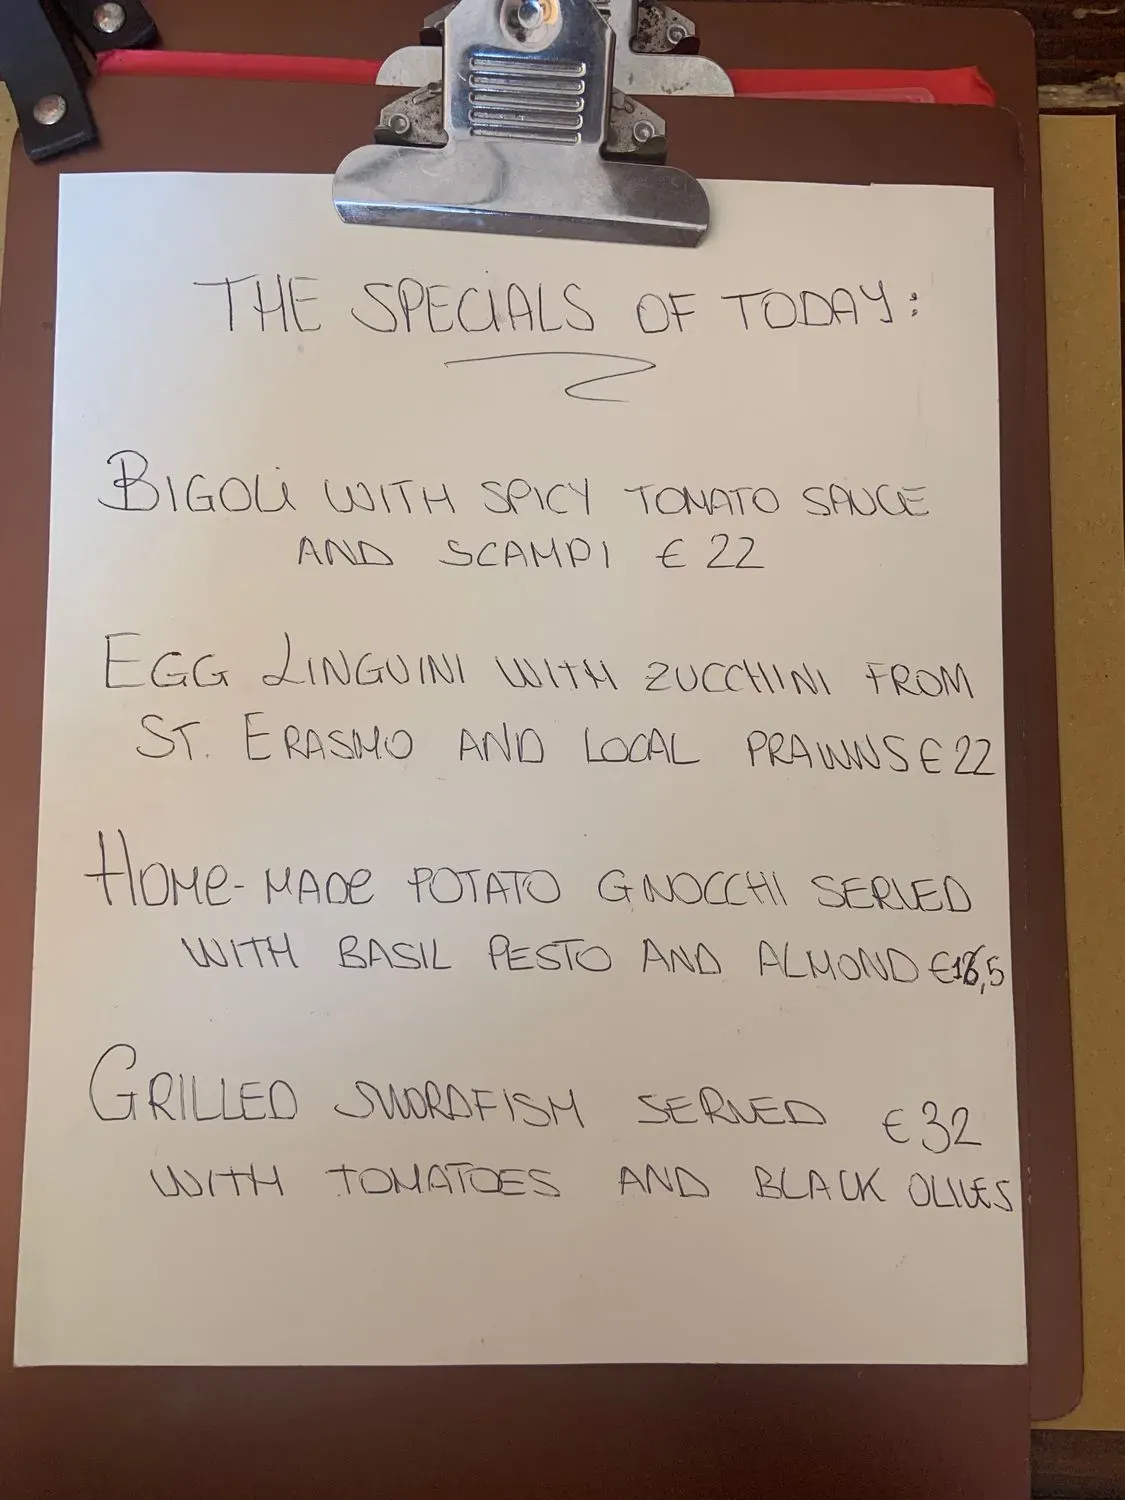 THE SPECIALS OF TODAY:
BIGOLI WITH SPICY TOMATO SAUCE
AND SCAMPI € 22
EGG LINGUINI WITH ZUCCHINI FROM
ST. ERASMO AND LOCAL PRAWNS € 22
HOME-MADE POTATO GNOCCHI SERVED
WITH BASIL PESTO AND ALMOND
GRILLED SWORDFISH SERVED € 32
WITH TOMATOES AND BLACK OLIVES